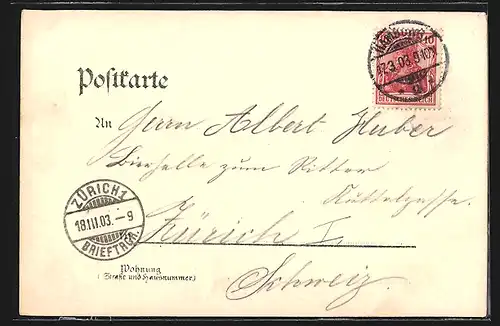 10
17.3.03. 9-10V
DEUTSCHES REICH
Postkarte
An Herrn Albert Huber
Bierhalle zum Ritter
Kuttelgasse.
Zürich I.
Schweiz.
ZÜRICH 1
18.III.03.-9
BRIEFTRGR.
Wohnung
(Straße und Hausnummer)